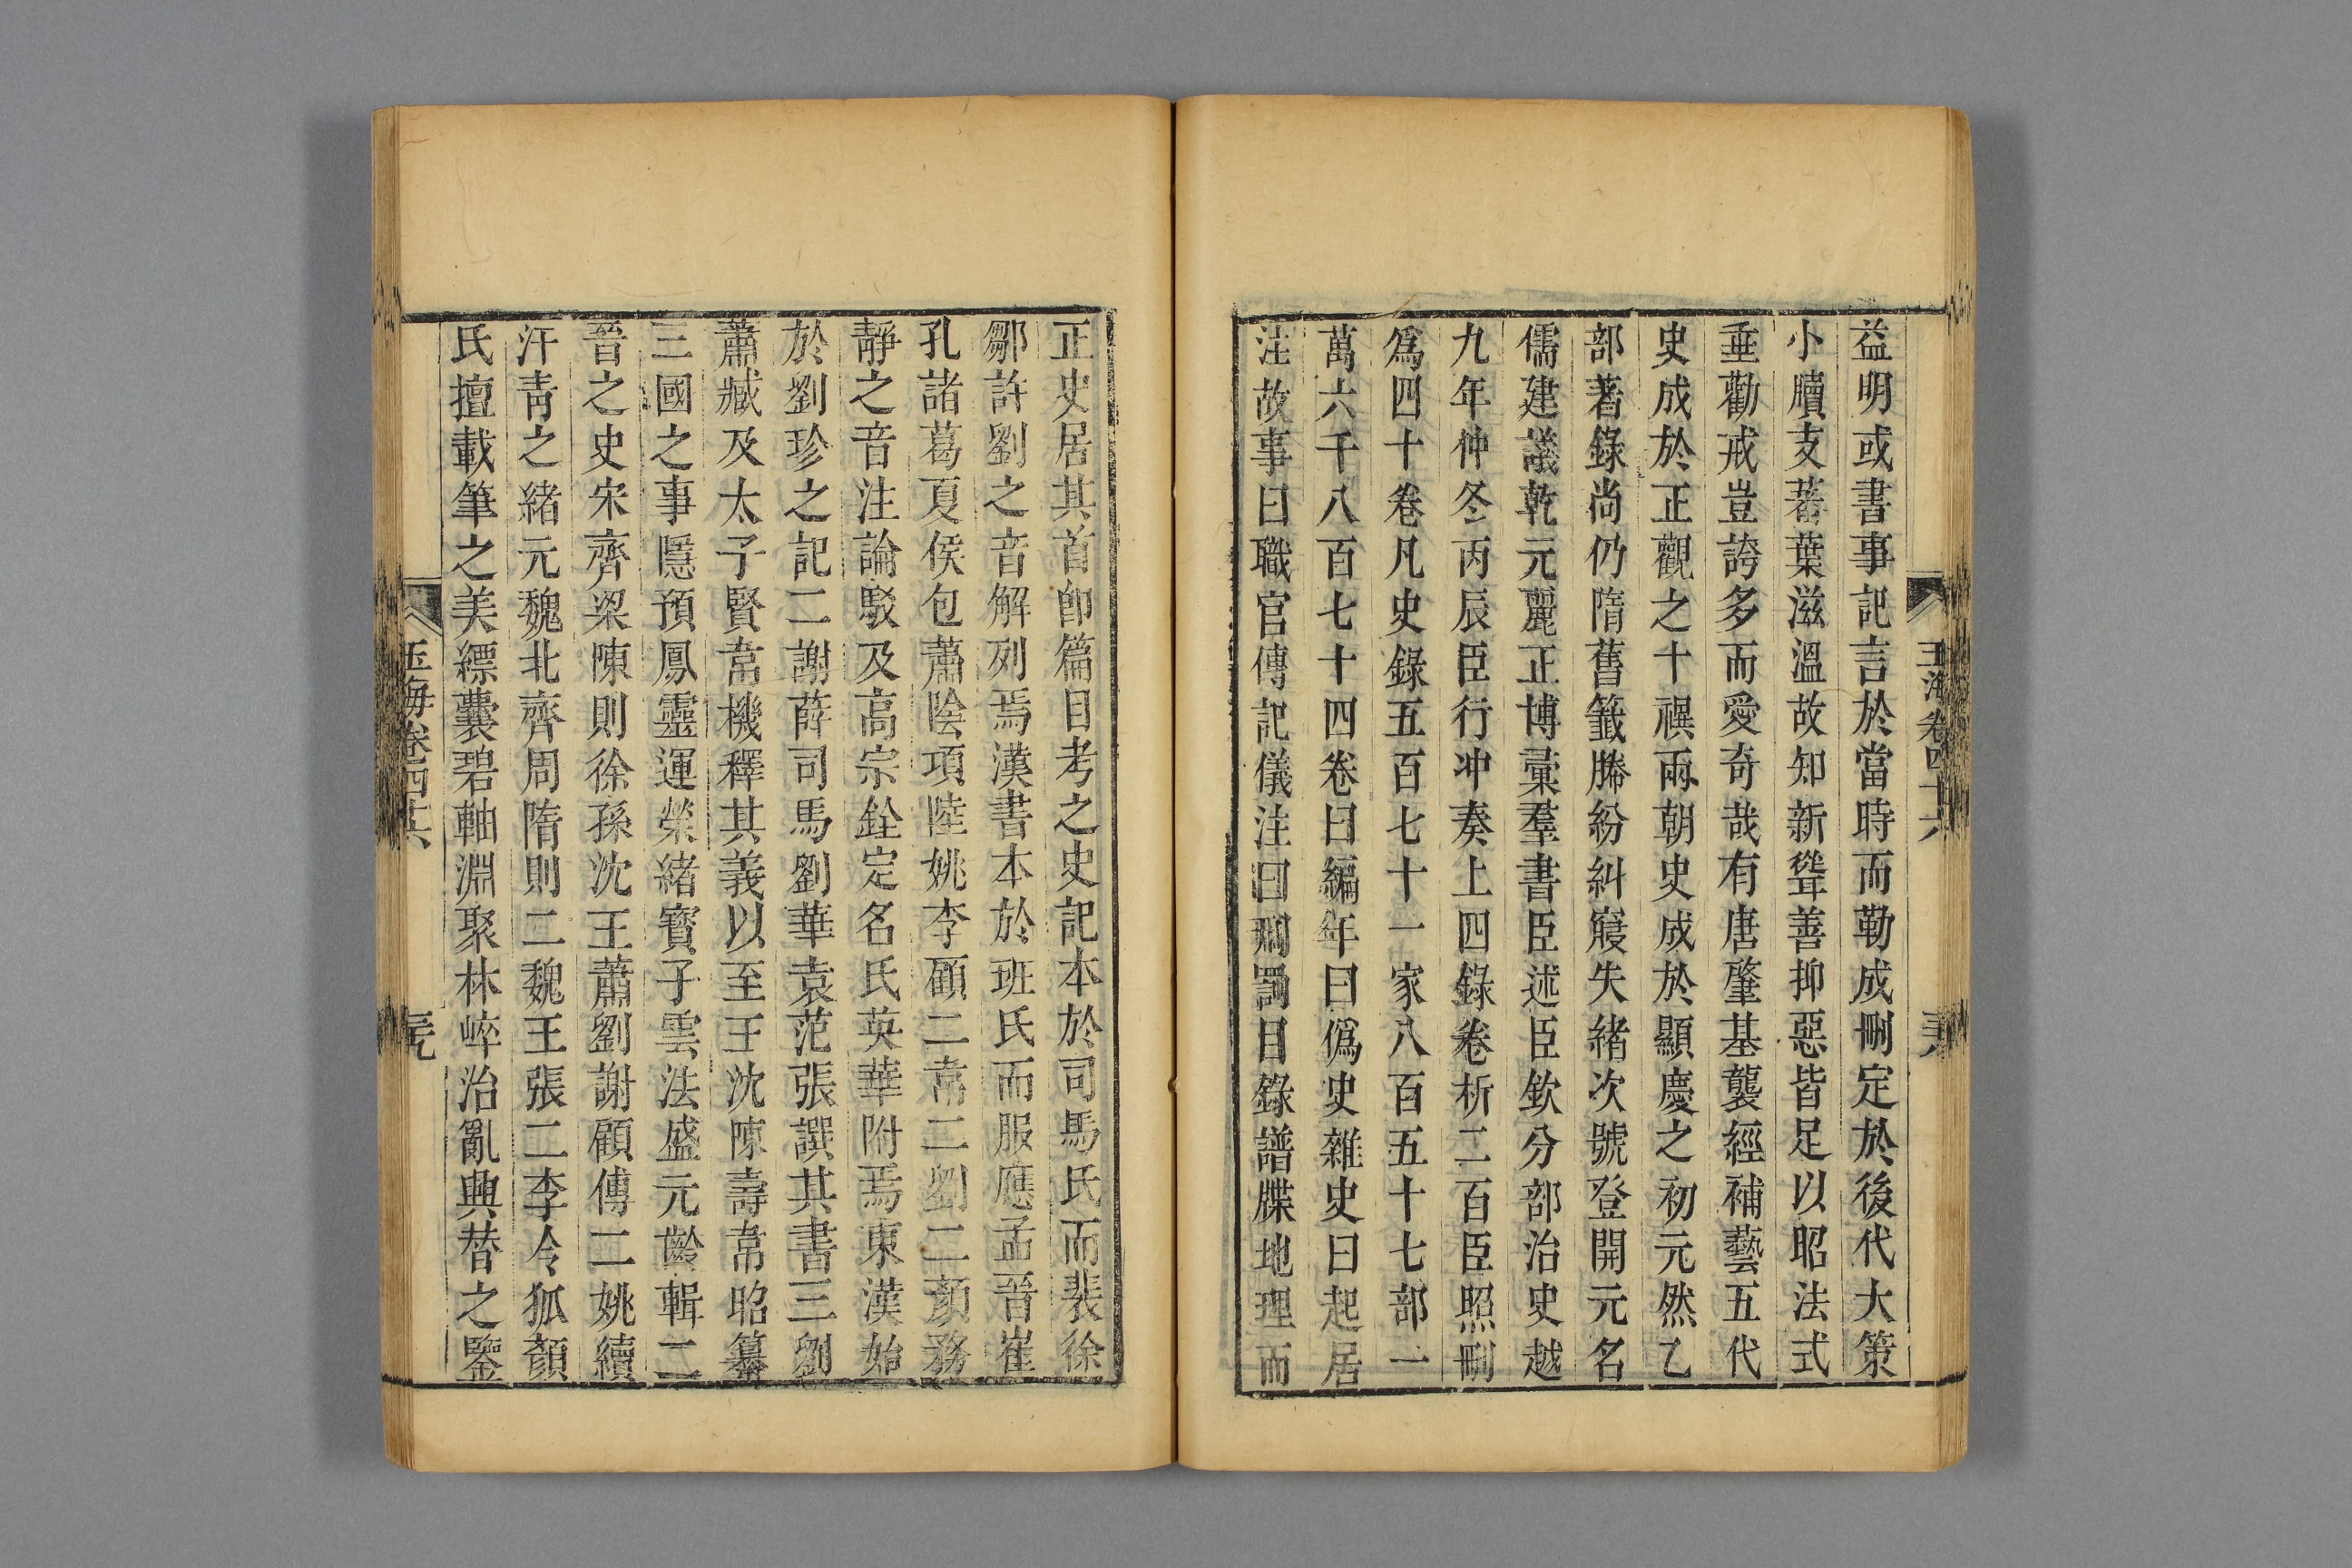 益明或書事記言於當時而勒成刪定於後代大策
小牘支蕃葉滋溫故知新聳善抑惡皆足以昭法式
垂勸戒豈誇多而愛奇哉有唐肇基襲經補藝五代
史成於正觀之十禩兩朝史成於顯慶之初元然乙
部著錄尚仍隋舊籤幐紛糾寢失緒次號登開元名
儒建議乾元麗正博彙羣書臣述臣欽分部治史越
九年仲冬丙辰臣行冲奏上四錄卷析二百臣照刪
爲四十卷凡史錄五百七十一家八百五十七部一
萬六千八百七十四卷曰編年曰僞史雜史曰起居
注故事曰職官傳記儀注曰刑罰目錄譜牒地理而
玉海卷四十六
正史居其首卽篇目考之史記本於司馬氏而裴徐
鄒許劉之音解列焉漢書本於班氏而服應孟晉崔
孔諸葛夏侯包蕭陰項陸姚李顧二韋二劉二顏務
靜之音注論駁及高宗銓定名氏英華附焉東漢始
於劉珍之記二謝薛司馬劉華袁范張譔其書三劉
蕭臧及太子賢韋機釋其義以至王沈陳壽韋昭纂
三國之事隱預鳳靈運榮緒寶子雲法盛元齡輯二
晉之史宋齊梁陳則徐孫沈王蕭劉謝顧傅二姚續
汗靑之緒元魏北齊周隋則二魏王張二李令狐顏
氏擅載筆之美縹囊碧軸淵聚林崒治亂興替之鑒
玉海卷四十六